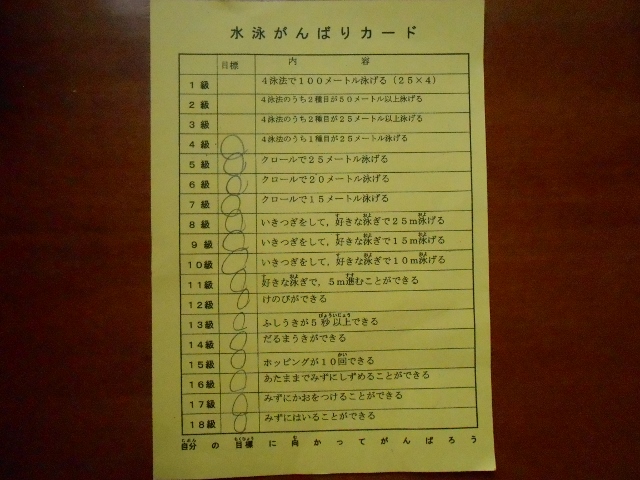 水泳がんばりカード
目標 内容
1級 4泳法で100メートル泳げる(25×4)
2級 4泳法のうち2種目が50メートル以上泳げる
3級 4泳法のうち2種目が25メートル以上泳げる
4級 4泳法のうち1種目が25メートル泳げる
5級 クロールで25メートル泳げる
6級 クロールで20メートル泳げる
7級 クロールで15メートル泳げる
8級 いきつぎをして,好きな泳ぎで25m泳げる
9級 いきつぎをして,好きな泳ぎで15m泳げる
10級 いきつぎをして,好きな泳ぎで10m泳げる
11級 好きな泳ぎで,5m進むことができる
12級 けのびができる
13級 ふしうきが5秒以上できる
14級 だるまうきができる
15級 ホッピングが10回できる
16級 あたままでみずにしずめることができる
17級 みずにかおをつけることができる
18級 みずにはいることができる
自分の目標に向かってがんばろう